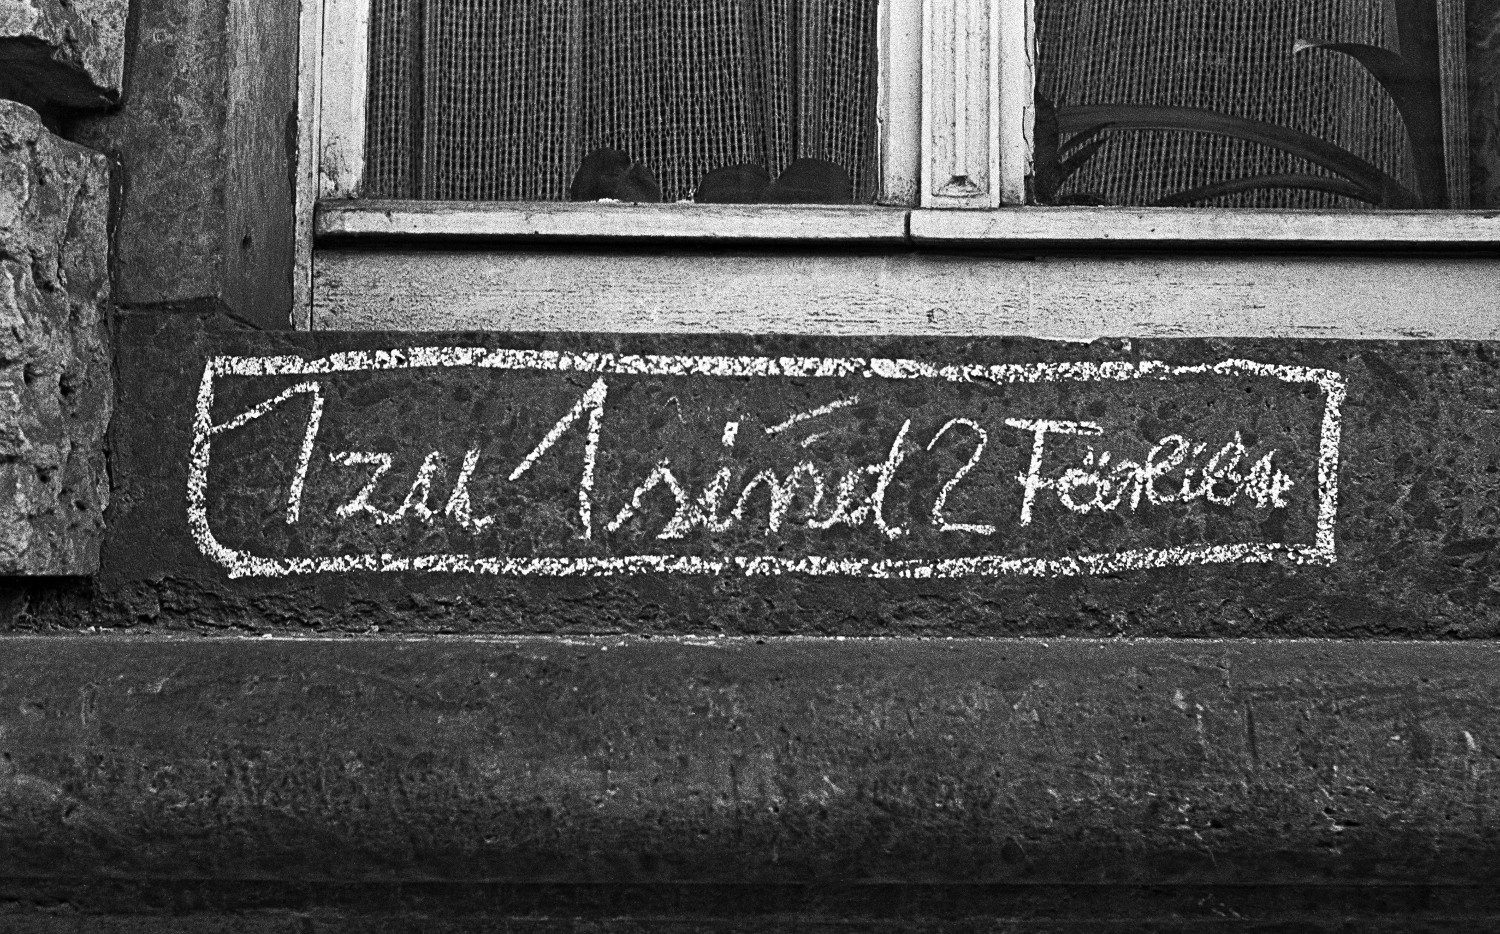 1 zu 1 sind 2 Färlibt